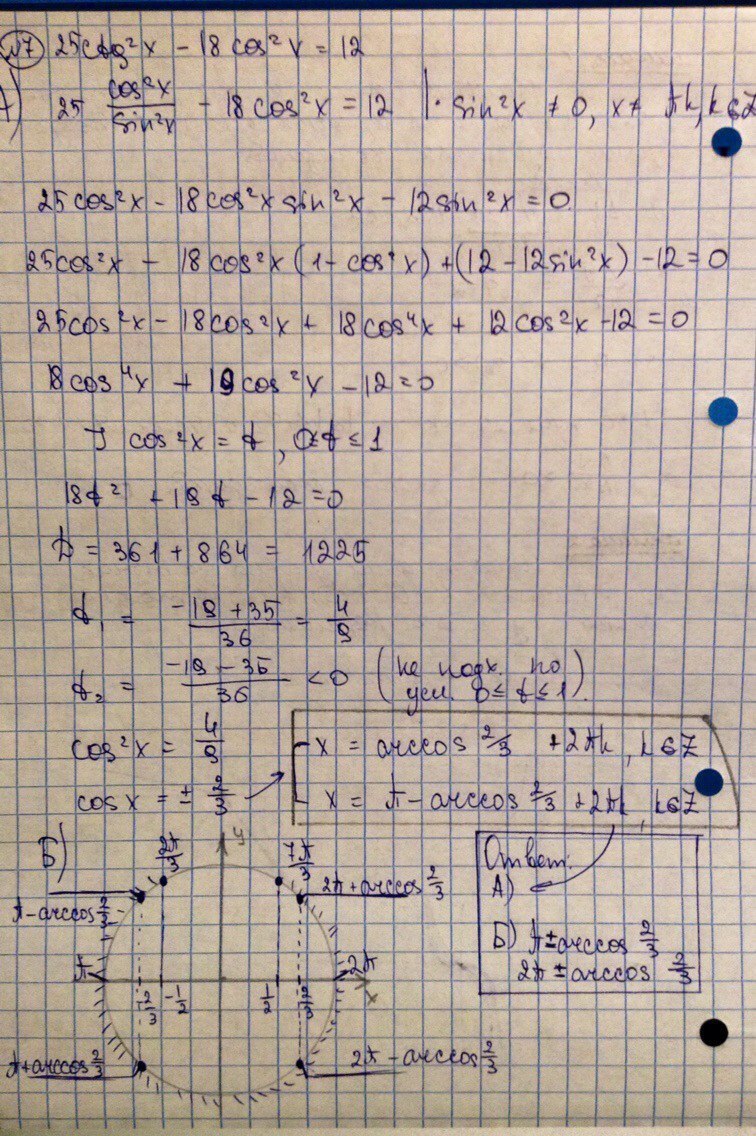 №7 25ctg²x - 18cos²x = 12
А) 25 cos²x/sin²x - 18cos²x = 12 | · sin²x ≠ 0, x ≠ πk, k∈Z
25cos²x - 18cos²x sin²x - 12sin²x = 0
25cos²x - 18cos²x(1-cos²x) + (12-12sin²x) - 12 = 0
25cos²x - 18cos²x + 18cos⁴x + 12cos²x - 12 = 0
18cos⁴x + 19cos²x - 12 = 0
J cos²x = t, 0≤t≤1
18t² + 19t - 12 = 0
D = 361 + 864 = 1225
t₁ = (-19+35)/36 = 4/9
t₂ = (-19-35)/36 < 0 (не подх. по
усл. 0≤t≤1).
cos²x = 4/9
cosx = ± 2/3
x = arccos 2/3 + 2πk, k∈Z
x = π - arccos 2/3 + 2πk, k∈Z
Б)
2π/3
y
7π/3
π - arccos 2/3
2π + arccos 2/3
π
2π
x
-2/3
-1/2
1/2
2/3
π + arccos 2/3
2π - arccos 2/3
Ответ:
А)
Б) π ± arccos 2/3
2π ± arccos 2/3